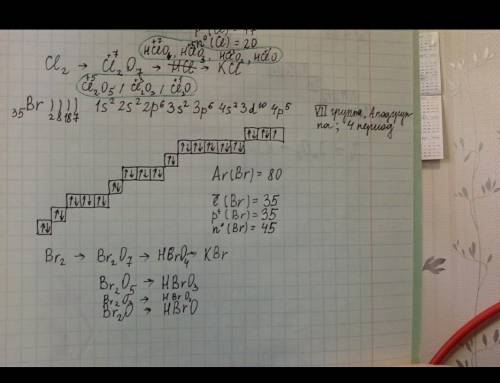 p⁺(Cl) = 17
n⁰(Cl) = 20
+7 HClO₄, HClO₃, HClO₂, HClO
Cl₂ → +7 Cl₂O₇ → HCl → KCl
+5 Cl₂O₅ ; +3 Cl₂O₃ ; +1 Cl₂O
₃₅Br ) ) ) ) 2 8 18 7 1s² 2s² 2p⁶ 3s² 3p⁶ 4s² 3d¹⁰ 4p⁵
VII группа, А подгруп
па; 4 период
Ar(Br) = 80
e̅(Br) = 35
p⁺(Br) = 35
n⁰(Br) = 45
Br₂ → Br₂O₇ → HBrO₄ → KBr
Br₂O₅ → HBrO₃
Br₂O₃ → HBrO₂
Br₂O → HBrO